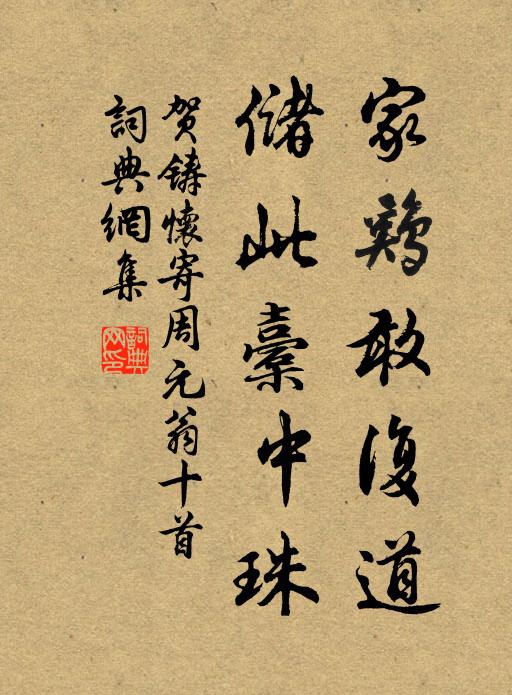 家鷄敢復道
儲此櫜中珠
賀鑄懷寄周元翁十首
詞典網集
詞典網印